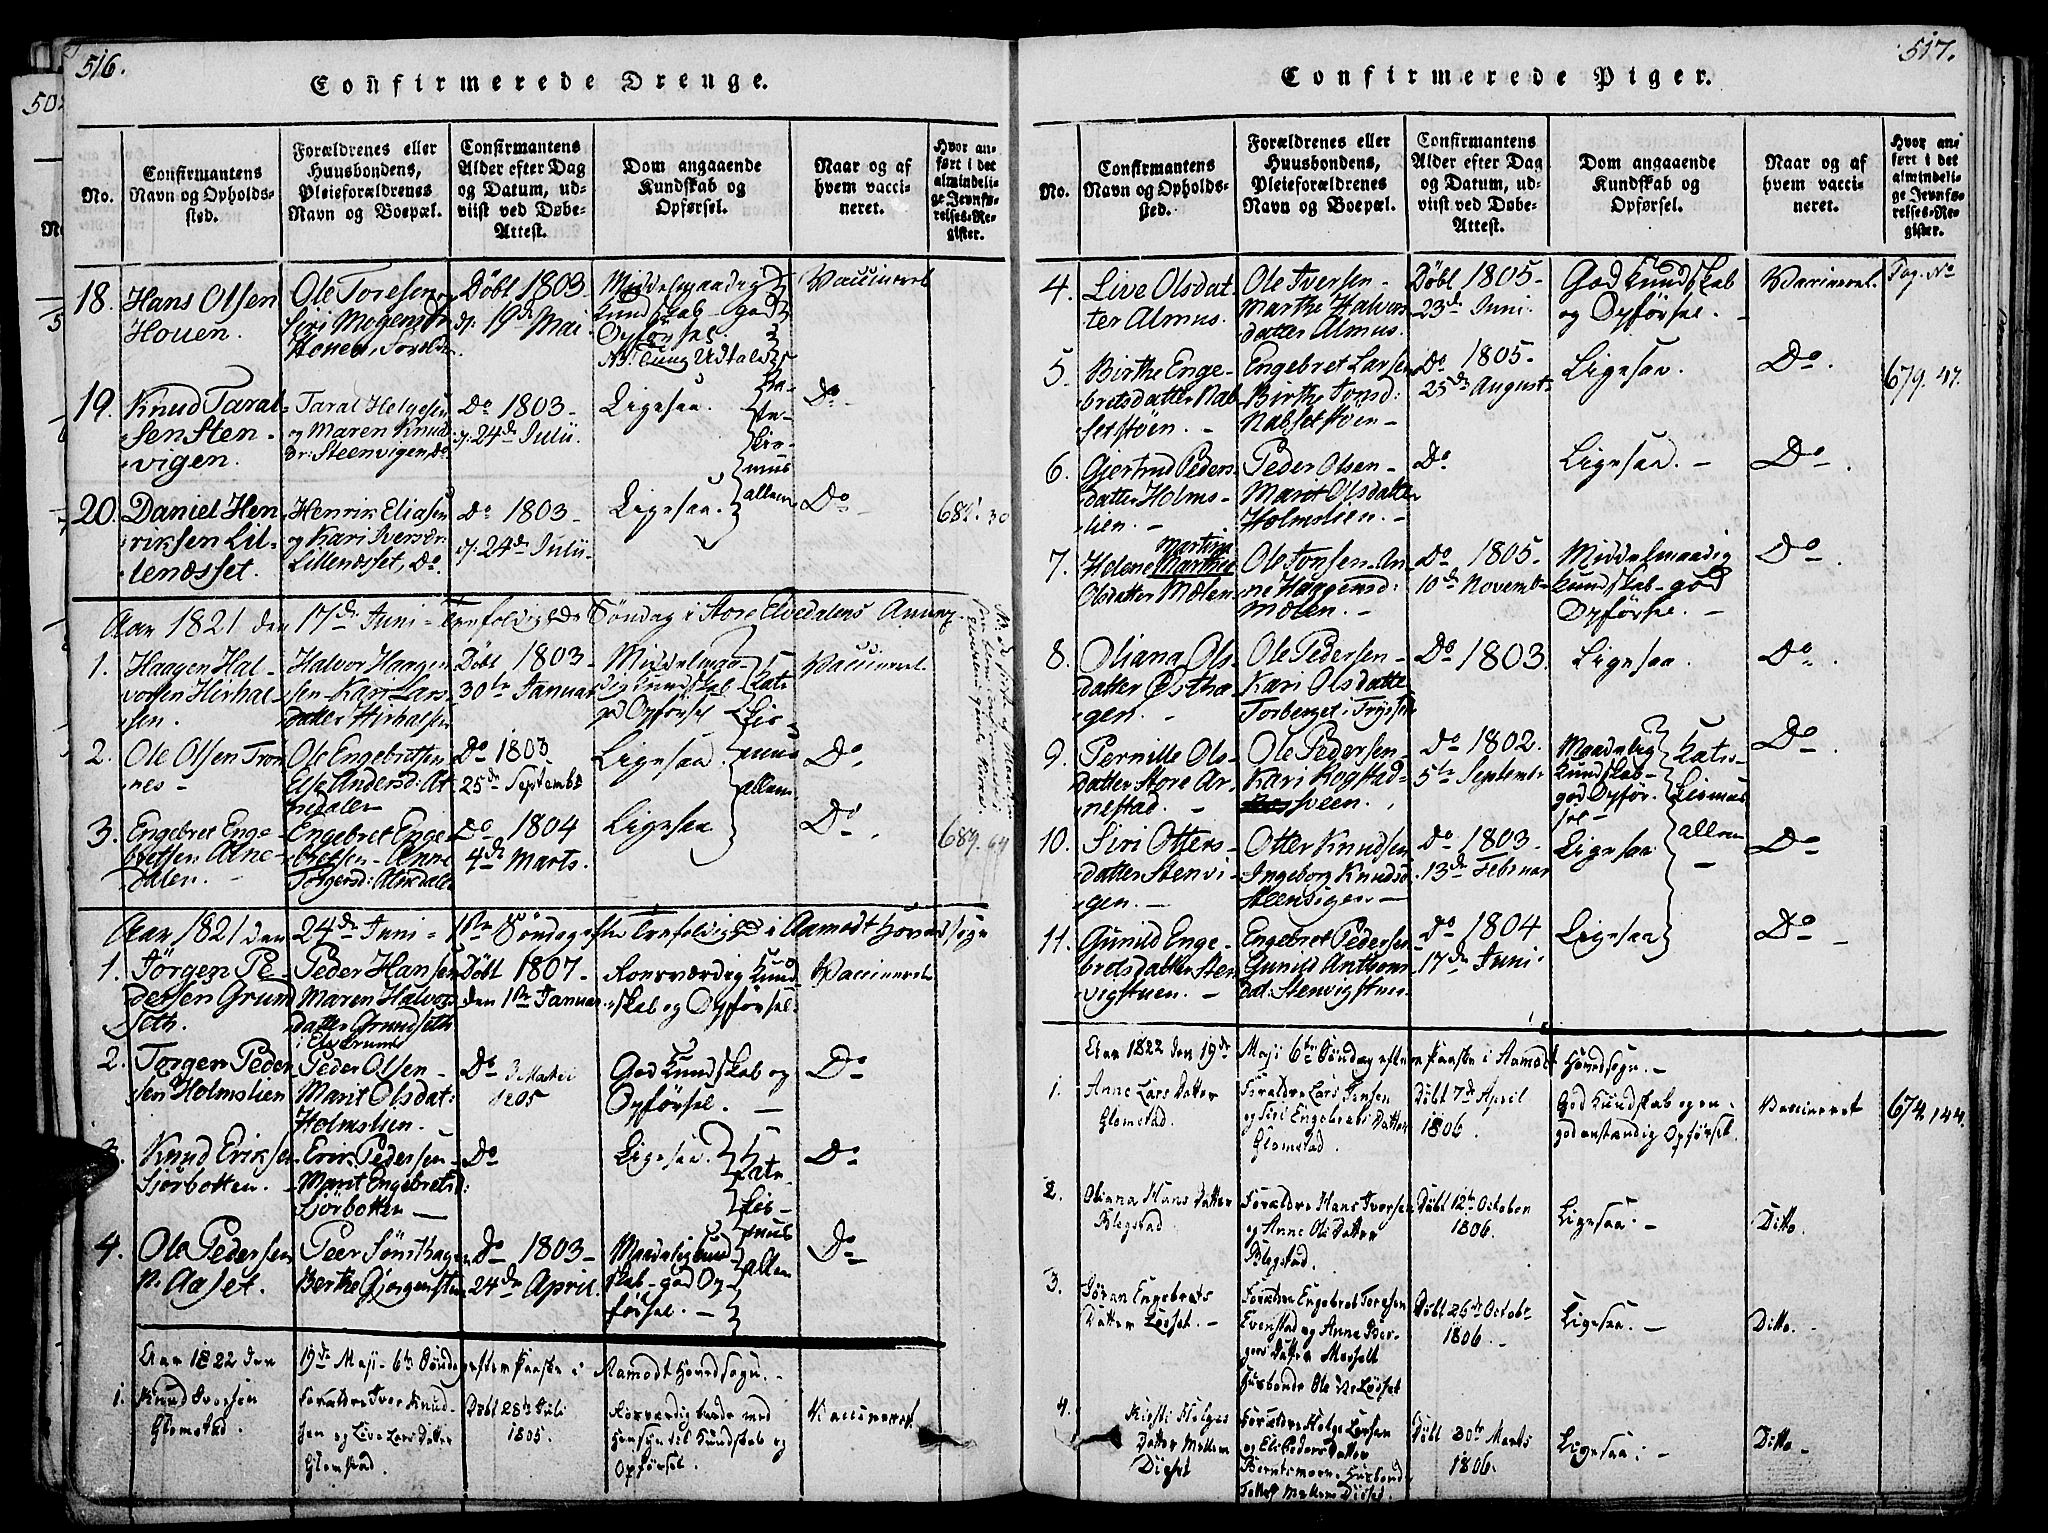 516.
Confirmerede Drenge.
No.
Confirmantens
Navn og Opholds-
sted.
Forældrenes eller
Huusbondens,
Pleieforældrenes
Navn og Boepæl.
Confirmantens
Alder efter Dag
og Datum, ud-
viist ved Døbe-
Attest.
Dom angaaende
Kundskab og
Opførsel.
Naar og af
hvem vacci-
neret.
Hvor an-
ført i det
almindeli-
ge Jevnfø-
relses-Re-
gister.
18.
Hans Olsen
Houen.
Ole Toresen
Siri Mogensdr
Houen, Foreldre
Døbt 1803
d: 19de Mai
Middelmaadig
Kundskab god
Opførsel
Vaccineret
19.
Knud Taral-
sen Sten-
vigen.
Taral Helgesen
og Maren Knuds
dr: Steenvigen, Do
Do 1803-
d: 24de Julii.
Ligesaa.
Do
20.
Daniel Hen-
riksen Lil-
lenæsset.
Henrik Eliasen
og Kari Iversdr
Lillenæsset, Do
Do 1803-
d: 24de Julii-
Ligesaa.
Do
684. 30
Aar 1821 den 17de Juni - Trefoldigheds Søndag i Store Elvedalens Annex.
1.
Haagen Hal-
vorsen Hirhal-
sen.
Halvor Haagen-
sen Kari Lars-
datter Hirhalsen
Døbt 1803
30te Januar
Middelmaa-
dig Kundskab
god Opførsel
Kate-
kis-
mus
allene
Vaccineret
2.
Ole Olsen Trøn-
nes-
Ole Engebretsen
Else Andersd: At-
negalen
Do 1803
25de Septembr
Ligesaa.
Do
3.
Engebret Enge-
bretsen Atne-
dalen.
Engebret Enge-
bretsen- Anne
Torgersd: Atnedalen
Do 1804
4de Marts.
Ligesaa
Do.
689. 64
Aar 1821 den 24de Juni - 1ste Søndag efter Trefoldighed i Aamodt Hovedsogn
1.
Jørgen Pe-
dersen Grund
seth.
Peder Hansen
Maren Halvors
datter Grundseth
i Elverum
Døbt 1807.
den 1ste Januar.
Roesværdig Kund-
skab og Opførsel.
Vaccineret
2.
Torgen Peder
sen Holmslien
Peder Olsen-
Marit Olsdat:
Holmslien.
Do 3 Martii
1805
God Kundskab og
Opførsel.
Do
3.
Knud Eriksen
Siørbotten.
Erik Pedersen-
Marit Engebretsd:
Siørbotten
Do
Ligesaa.
Kate-
kis-
mus
allen
Do
4.
Ole Pedersen
N. Aaset.
Peer Sønsthagen
Berthe Gjorgensten
Do 1803-
24de April.
Maadelig Kund
skab- god Op-
førsel.
Do
Aar 1822 den 19de Maji - 6te Søndag efter Paaske i Aamodt Hovedsogn.
1.
Knud Iversen
Glomstad.
Forældre Iver Knud-
sen og Live Lars Datter
Glomstad.
Døbt 28de Juli
1805.
Roesværdig baade med
Hensyn til Kundskab og
Opførsel.
Vaccineret.
517.
Confirmerede Piger.
No.
Confirmantens
Navn og Opholds-
sted.
Forældrenes eller
Huusbondens,
Pleieforældrenes
Navn og Boepæl.
Confirmantens
Alder efter Dag
og Datum, ud-
viist ved Døbe-
Attest.
Dom angaaende
Kundskab og
Opførsel.
Naar og af
hvem vacci-
neret.
Hvor an-
ført i det
almindeli-
ge Jevnfø-
relses-Re-
gister.
4.
Live Olsdat-
ter Almus.
Ole Iversen
Marthe Halvors
datter Almus.
Døbt 1805-
23de Juni.
God Kundskab
og Opførsel.
Vaccineret.
Pag. No
5.
Birthe Enge-
bretsdatter Nab-
setstøen.
Engebret Larsen
Birthe Jonsd:
Nabsetstøen
Do 1805-
25de August
Ligesaa.
Do.
679. 47.
6.
Gjertrud Peders-
datter Holms-
lien.
Peder Olsen-
Marit Olsdatter
Holmslien.
Do
Ligesaa.
Do.
7.
Martine
Helene Marthee
Olsdatter Mælen
Ole Jonsen. An-
ne Haagensd:
Mælen.
Do 1805-
10de Novembr
Middelmaadig
Kundskab- god
Opførsel.
Do
8.
Oliana Ols-
datter Østha-
gen.
Ole Pedersen-
Kari Olsdatter
Torberget i Trysild
Do 1803.
Ligesaa.
Do.
9.
Pernille Ols-
datter Store Ar-
nestad.
Ole Pedersen-
Kari Rogstad-
sveen.
Do 1802.
5te Septembr
Maadelig
Kundskab-
god Opfør-
sel
Kate-
kismus
allen
Do
10.
Siri Otters-
datter Stenvi-
gen.
Otter Knudsen
Ingeborg Knudsd.
Steenvigen
Do 1803-
13de Februar
Ligesaa
Do
11.
Gunild Enge-
bretsdatter Sten-
vigstuen.
Engebret Pedersen
Gunild Anthon-
dat: Stenvigstuen.
Do 1804
17de Juni
Ligesaa
Do
Aar 1822 den 19de Maji 6te Søndag efter Paaske i Aamodt Hovedsogn.
1.
Anne Lars Datter
Glomstad.
Forældre Lars Jensen
og Siri Engebrets Datter
Glomstad.
Døbt 7de April
1806.
God Kundskab og en
god anstændig Opførsel.
Vaccineret
674. 144.
2.
Oliana Hans Datter
Blegstad.
Forældre Hans Iversen
og Anne Ols Datter
Blegstad.
Døbt 12te October
1806.
Ligesaa.
Ditto.
3.
Jøran Engebrets
Datter Løsset.
Forældre Engebret Toresen
Evenstad og Anne Ber-
gers Datter Messelt
Husbonde Ole Løsset
Døbt 26de Octobr
1806.
Ligesaa.
Ditto.
4.
Kirsti Helges
Datter Mellem
Dieset
Forældre Helge Larsen
og Eli Peders Datter
Berntsmoen. Husbonde
Tollef Mellem Dieset.
Døbt 30te Marts
1806.
Ligesaa:
Ditto